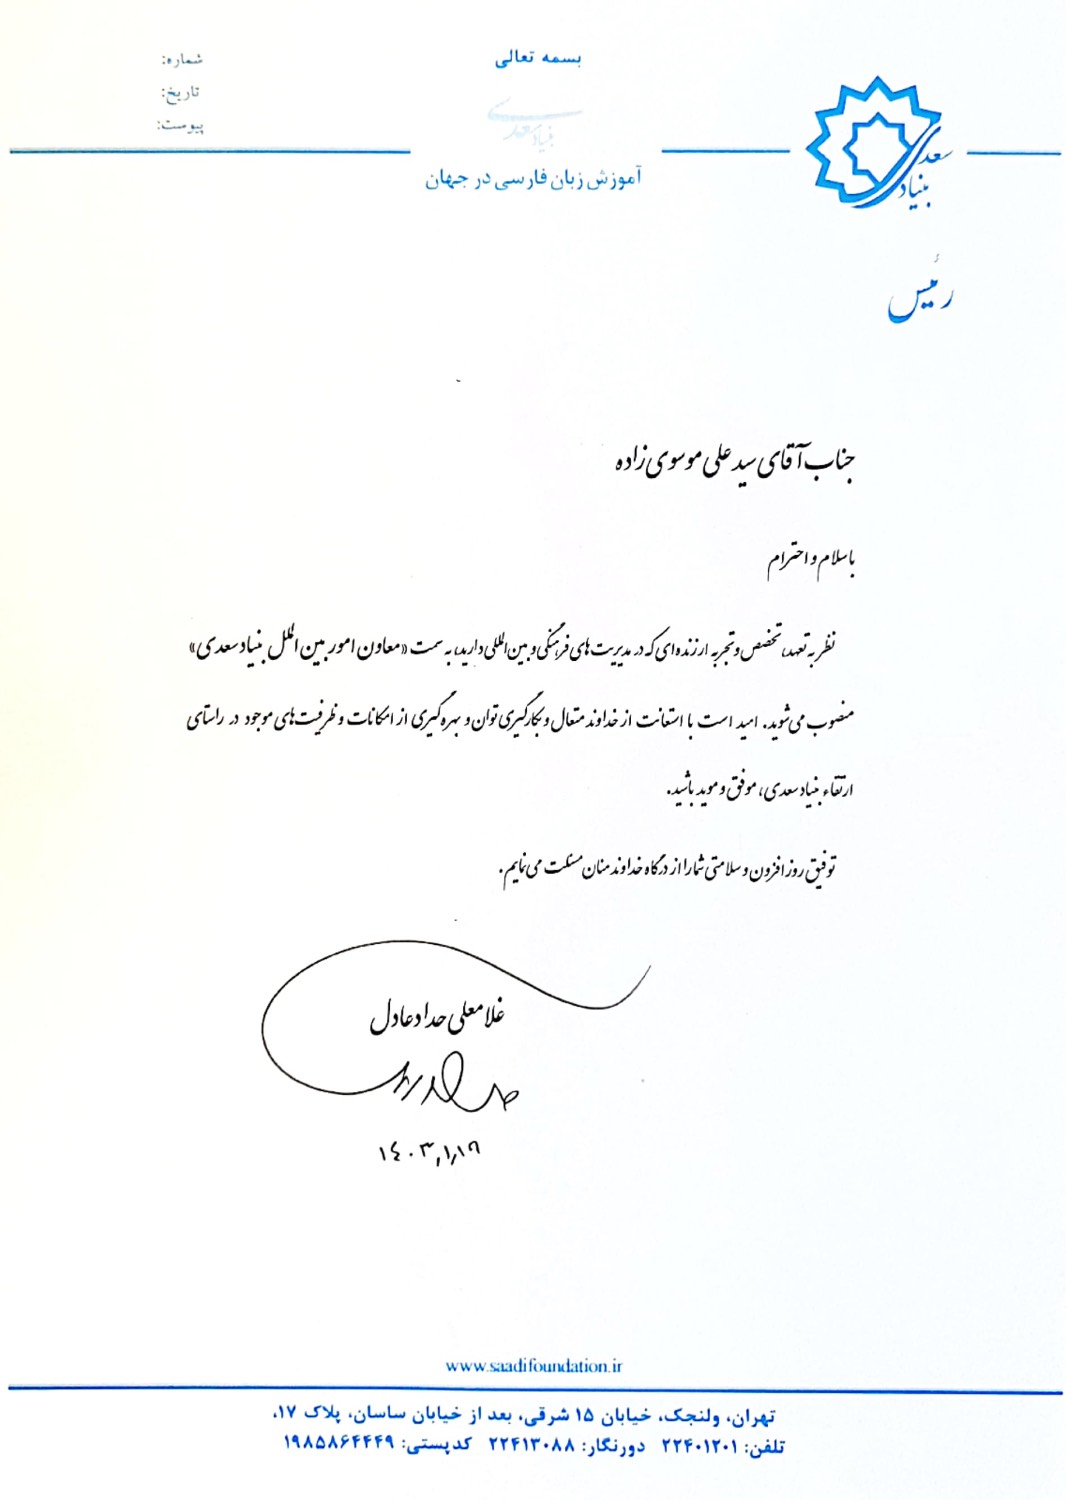 بسمه تعالی
شماره:
تاریخ:
پیوست:
بنیاد سعدی
آموزش زبان فارسی در جهان
بنیاد سعدی
رئیس
جناب آقای سید علی موسوی زاده
با سلام و احترام
نظر به تعهد، تخصص و تجربه ارزنده‌ای که در مدیریت های فرهنگی و بین المللی دارید، به سمت «معاون امور بین الملل بنیاد سعدی»
منصوب می شوید. امید است با استعانت از خداوند متعال و بکارگیری توان و بهره گیری از امکانات و ظرفیت های موجود در راستای
ارتقاء بنیاد سعدی، موفق و موید باشید.
توفیق روز افزون و سلامتی شما را از درگاه خداوند منان مسئلت می نمایم.
غلامعلی حداد عادل
۱۴۰۳,۱,۱۹
www.saadifoundation.ir
تهران، ولنجک، خیابان ۱۵ شرقی، بعد از خیابان ساسان، پلاک ۱۷،
تلفن: ۲۲۴۰۱۲۰۱ دورنگار: ۲۲۴۱۳۰۸۸ کدپستی: ۱۹۸۵۸۶۴۴۴۹